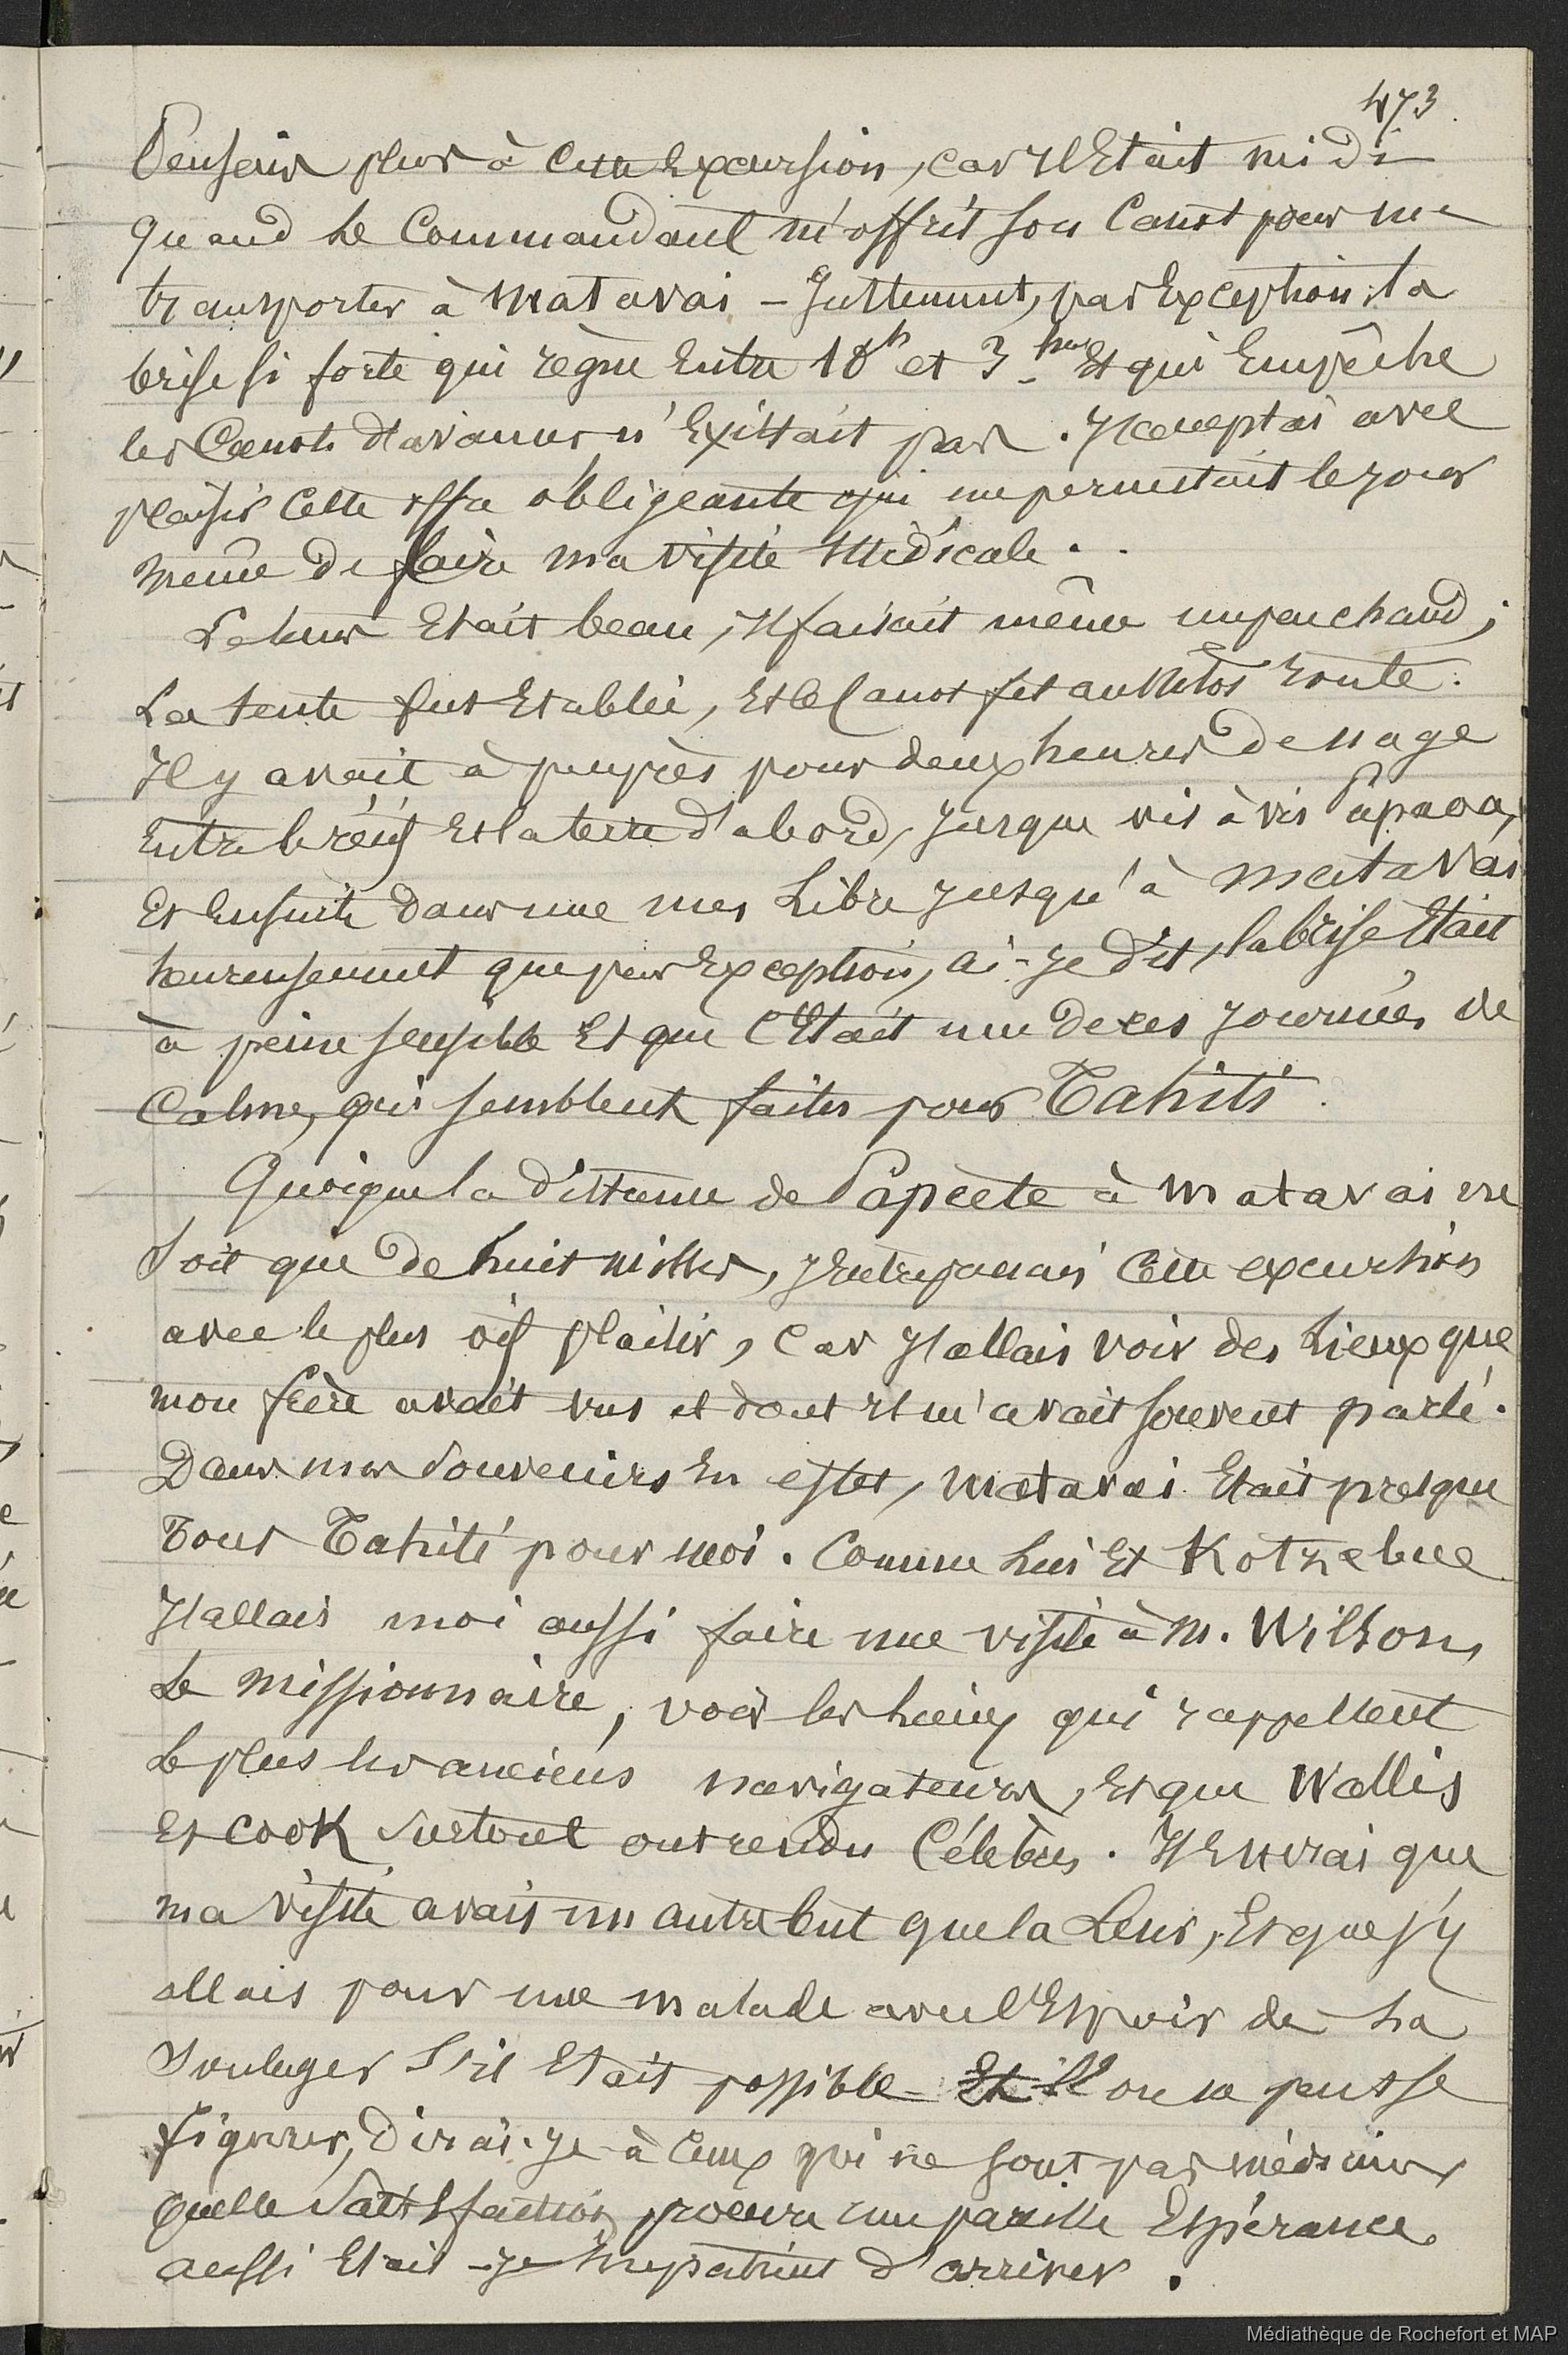 473
Pensais plus à cette Excursion, car Il Etait midi
quand le Commandant m'offrit son Canot pour me
transporter à Matavai - Justement, par Exception, la
brise si forte qui règne Entre 10h et 3 hres Et qui Empêche
les Canots d'avancer n'Existait pas. J'acceptai avec
plaisir Cette offre obligeante qui me permettait le jour
même de faire ma visite Médicale.
Le temps Etait beau, Il faisait même un peu chaud;
La tente fut Etablie, Et le Canot fit aussitôt Route.
Il y avait à peu près pour deux heures de nage
Entre le récif Et la terre d'abord, Jusque vis à vis Papaoa,
Et Ensuite dans une mer Libre jusqu'à Matavai
heureusement que par Exception, ai-je dit, la brise Etait
à peine sensible Et que C'Etait une de ces journées de
Calme, qui semblent faites pour Tahiti.
Quoique la distance de Papeete à Matavai ne
Soit que de huit milles, J'Entreprenais Cette excursion
avec le plus vif plaisir, Car J'allais voir des Lieux que
mon frère avait vus et dont Il m'avait souvent parlé.
Dans mes Souvenirs En effet, Matavai Etait presque
Tout Tahiti pour moi. Comme Lui Et Kotzebue
J'allais moi aussi faire une visite à M. Wilson,
Le Missionnaire, voir les Lieux qui rappellent
Le plus les anciens navigateurs, Et que Wallis
Et Cook Surtout ont rendu Célèbres. Il Est vrai que
ma visite avait un autre but que la Leur, Et que j'y
allais pour une malade avec l'Espoir de La
Soulager S'il Etait possible - Et il on ne peut se
figurer, dirai-je à Ceux qui ne sont pas médecins,
quelle Satisfaction procure une pareille Espérance,
aussi Etait-je Impatient d'arriver.
Médiathèque de Rochefort et MAP